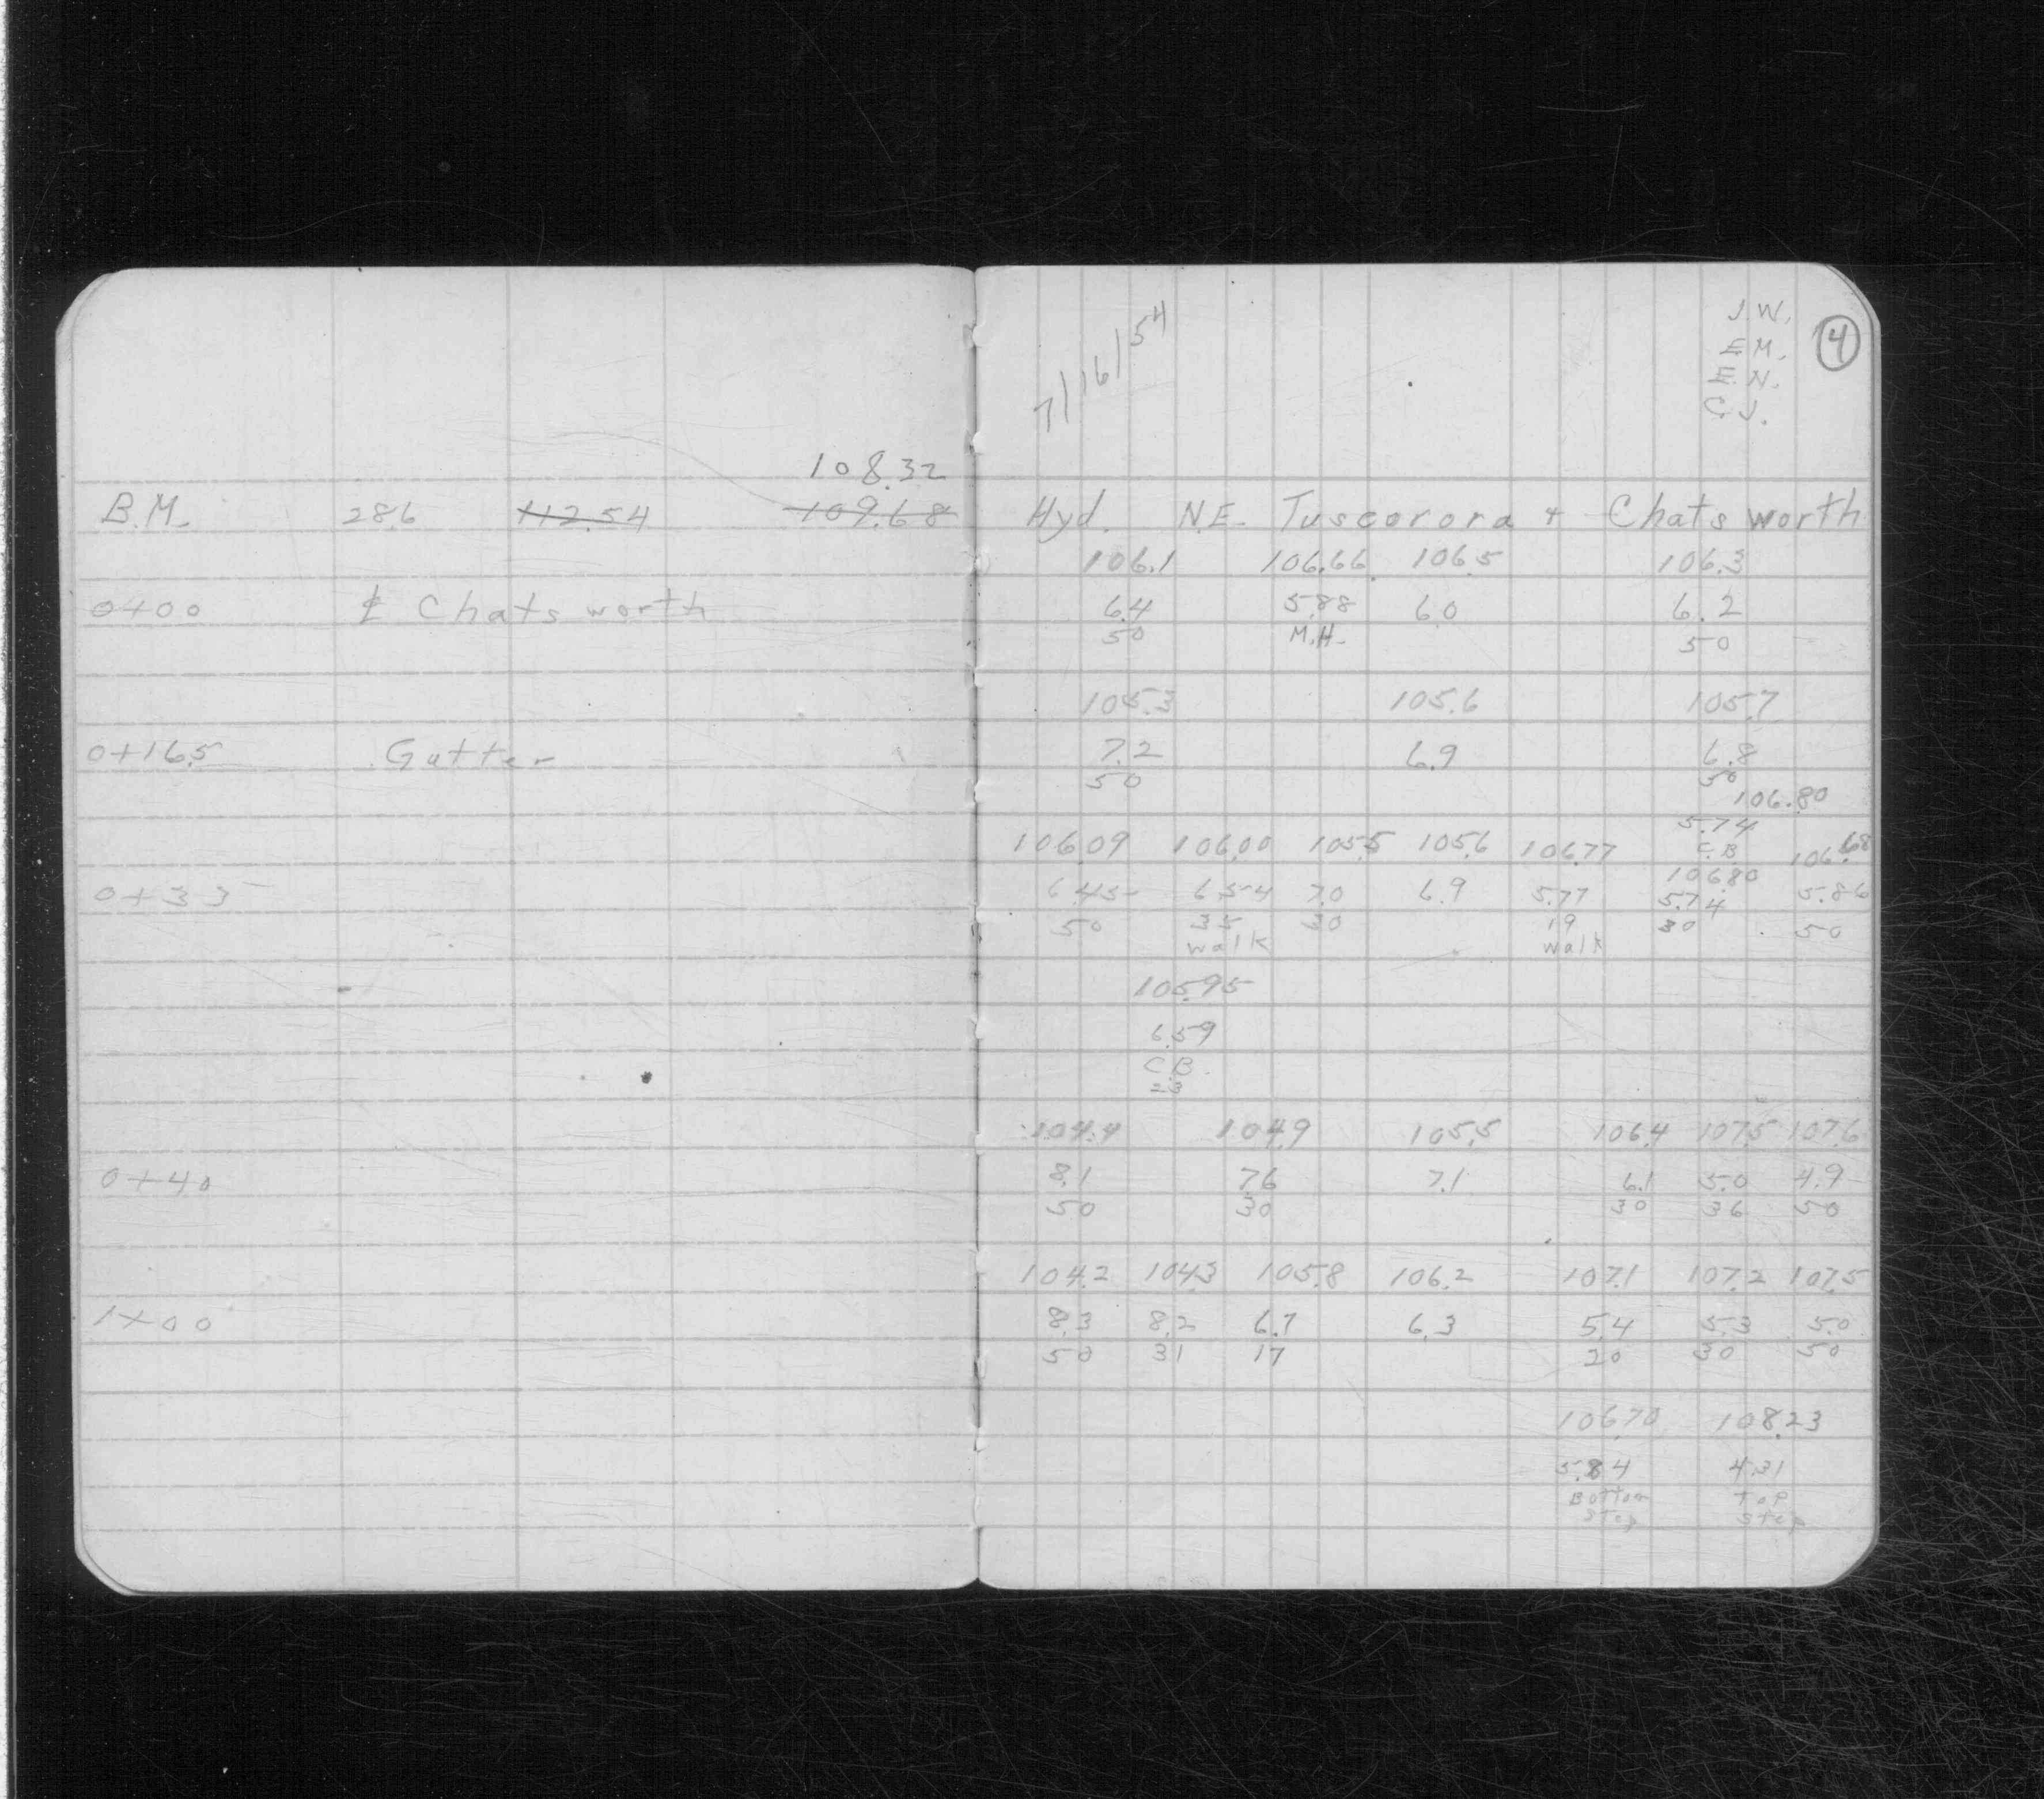 108.32
B.M. 2.86 112.54 109.68
0+00 ℄ Chatsworth
0+16.5 Gutter
0+33
0+40
1+00
7/16/54
J.W.
E.M.
E.N.
C.J.
4
Hyd. N.E. Tuscorora + Chatsworth
106.1 106.66 106.5 106.3
6.4 5.88 6.0 6.2
50 M.H. 50
105.3 105.6 105.7
7.2 6.9 6.8
50 50
106.80
5.74
C.B.
106.09 106.00 105.5 105.6 106.77 106.80 106.68
6.45 6.54 7.0 6.9 5.77 5.74 5.86
50 35 30 19 30 50
walk walk
105.95
6.59
C.B.
23
104.4 104.9 105.5 106.4 107.5 107.6
8.1 7.6 7.1 6.1 5.0 4.9
50 30 30 36 50
104.2 104.3 105.8 106.2 107.1 107.2 107.5
8.3 8.2 6.7 6.3 5.4 5.3 5.0
50 31 17 20 30 50
106.70 108.23
5.84 4.31
Bottom Top
Step Step